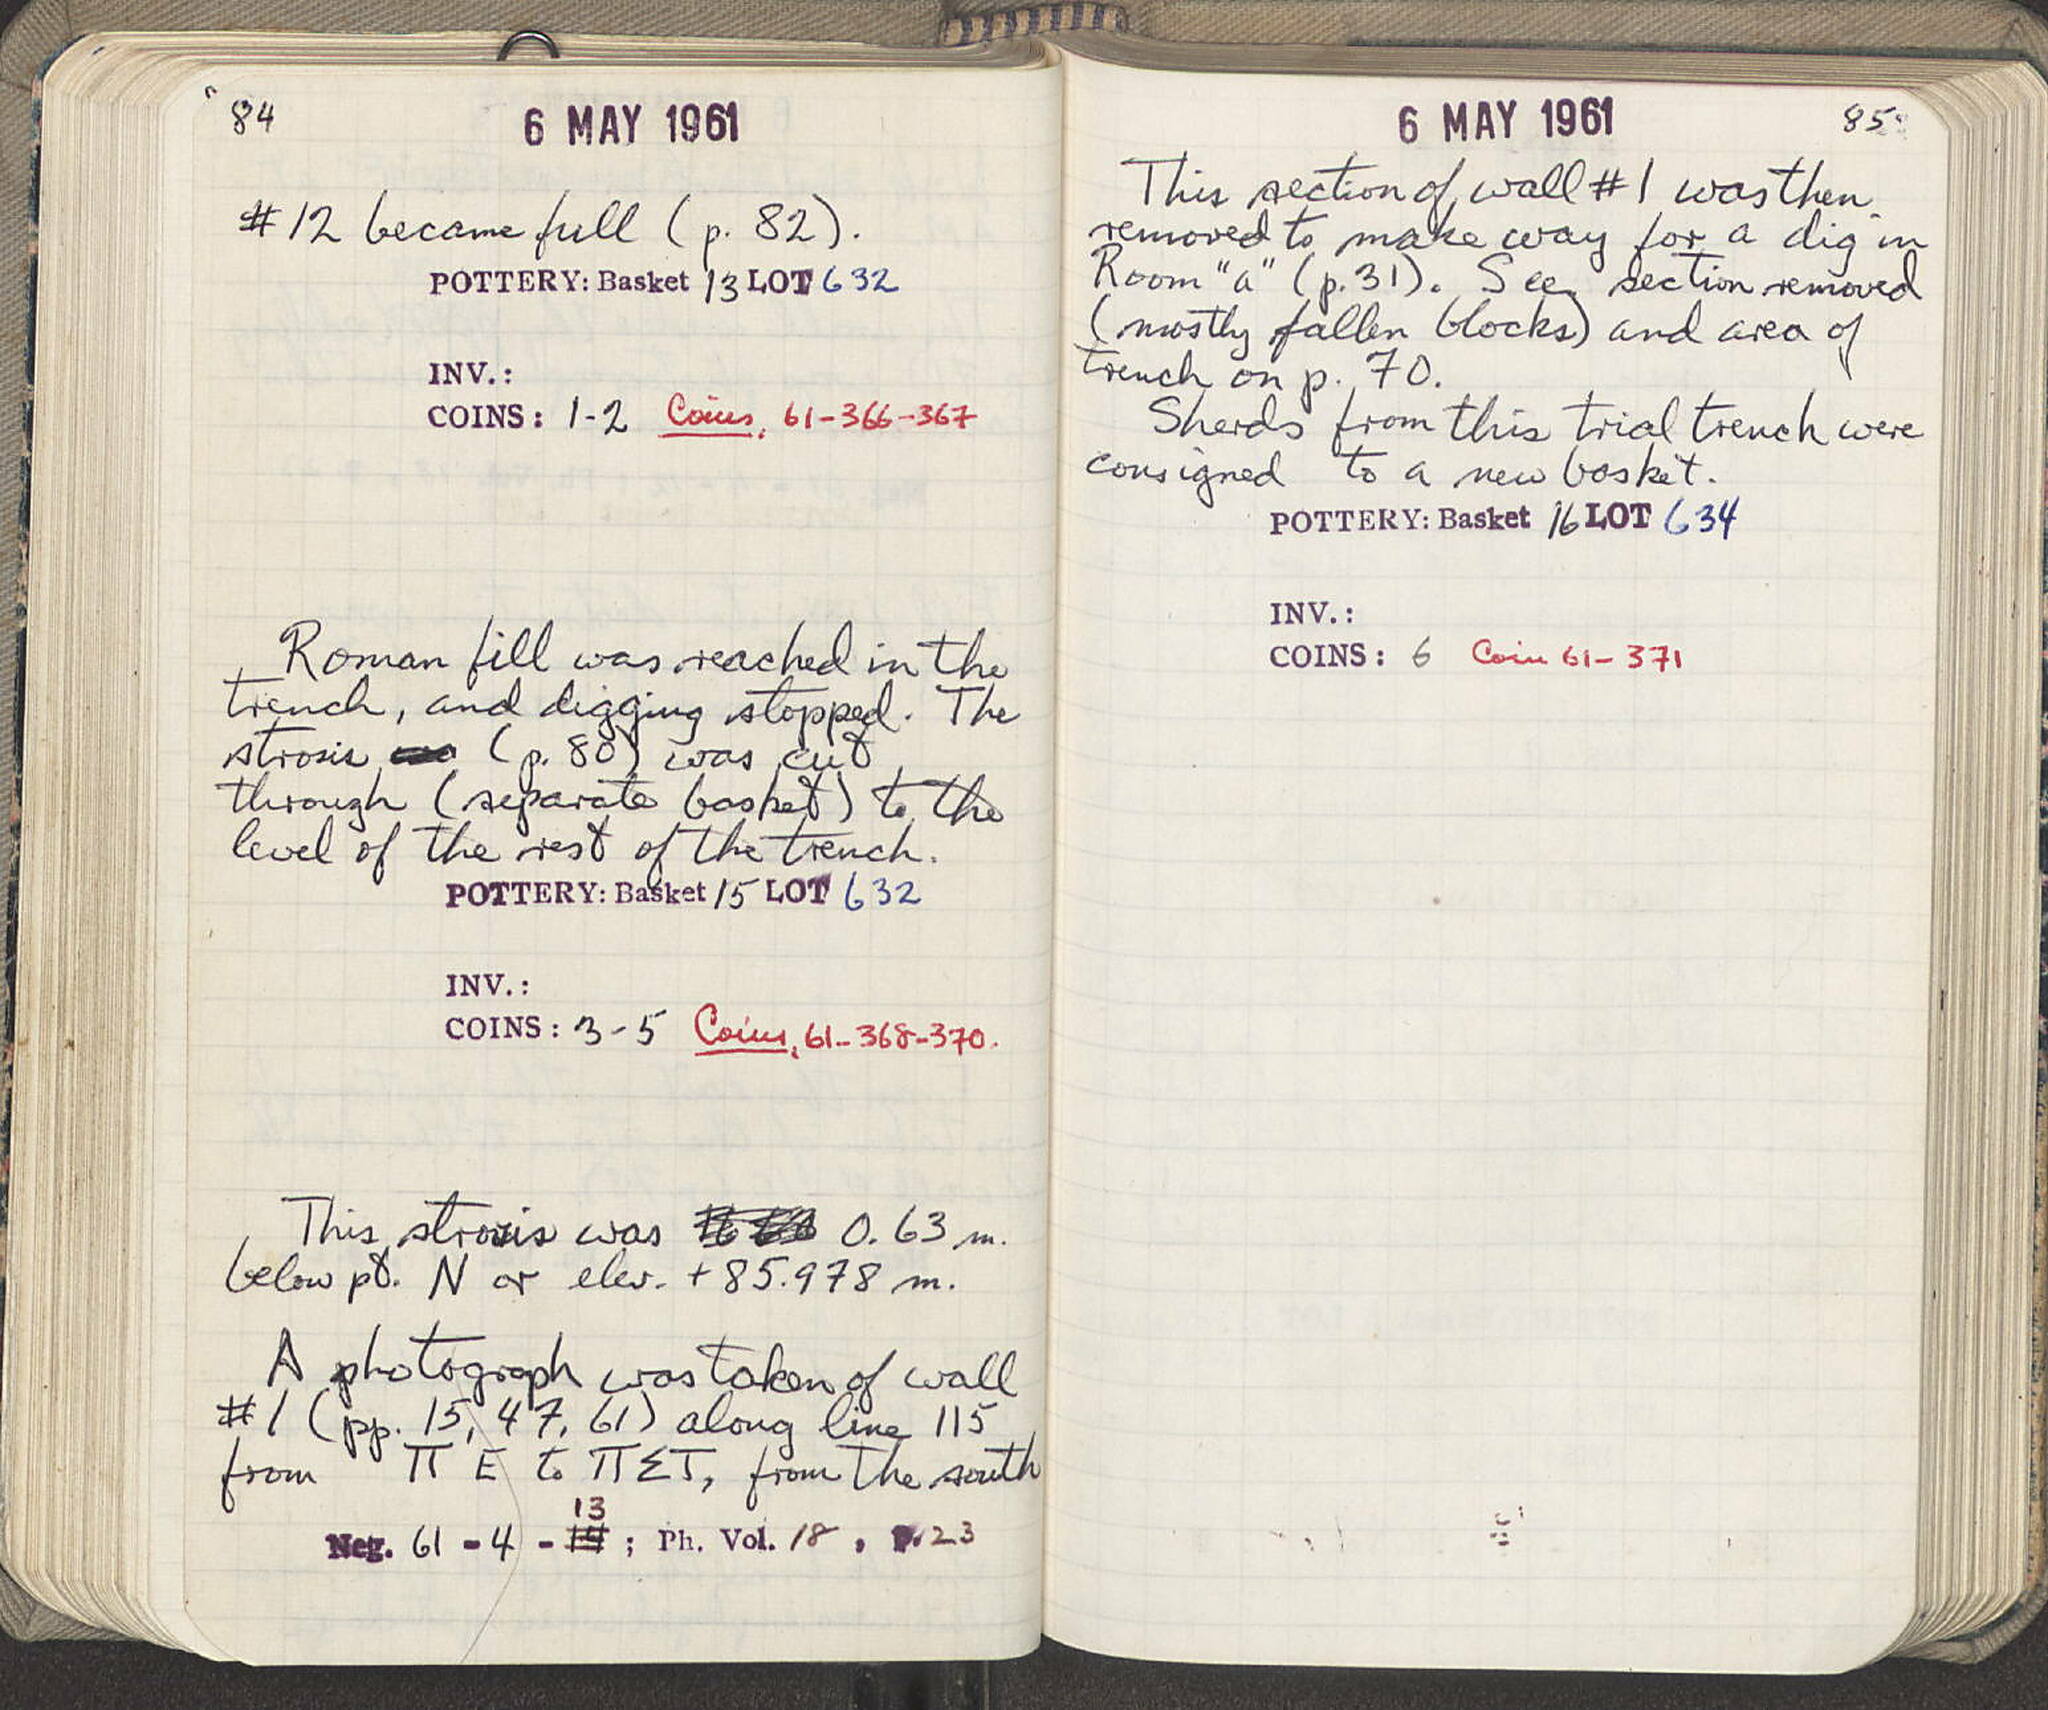 84
6 MAY 1961
#12 became full (p. 82).
POTTERY: Basket 13 LOT 632
INV.:
COINS: 1-2 Coins, 61-366-367
Roman fill was reached in the
trench, and digging stopped. The
strosis (p. 80) was cut
through (separate basket) to the
level of the rest of the trench.
POTTERY: Basket 15 LOT 632
INV.:
COINS: 3-5 Coins, 61-368-370.
This strosis was 0.63 m.
below pt. N or elev. +85.978 m.
A photograph was taken of wall
#1 (pp. 15, 47, 61) along line 115
from Π E to ΠΣΤ, from the south
13
Neg. 61-4-14; Ph. Vol. 18, p. 23
6 MAY 1961
85
This section of wall #1 was then
removed to make way for a dig in
Room "a" (p.31). See section removed
(mostly fallen blocks) and area of
trench on p. 70.
Sherds from this trial trench were
consigned to a new basket.
POTTERY: Basket 16 LOT 634
INV.:
COINS: 6 Coin 61-371